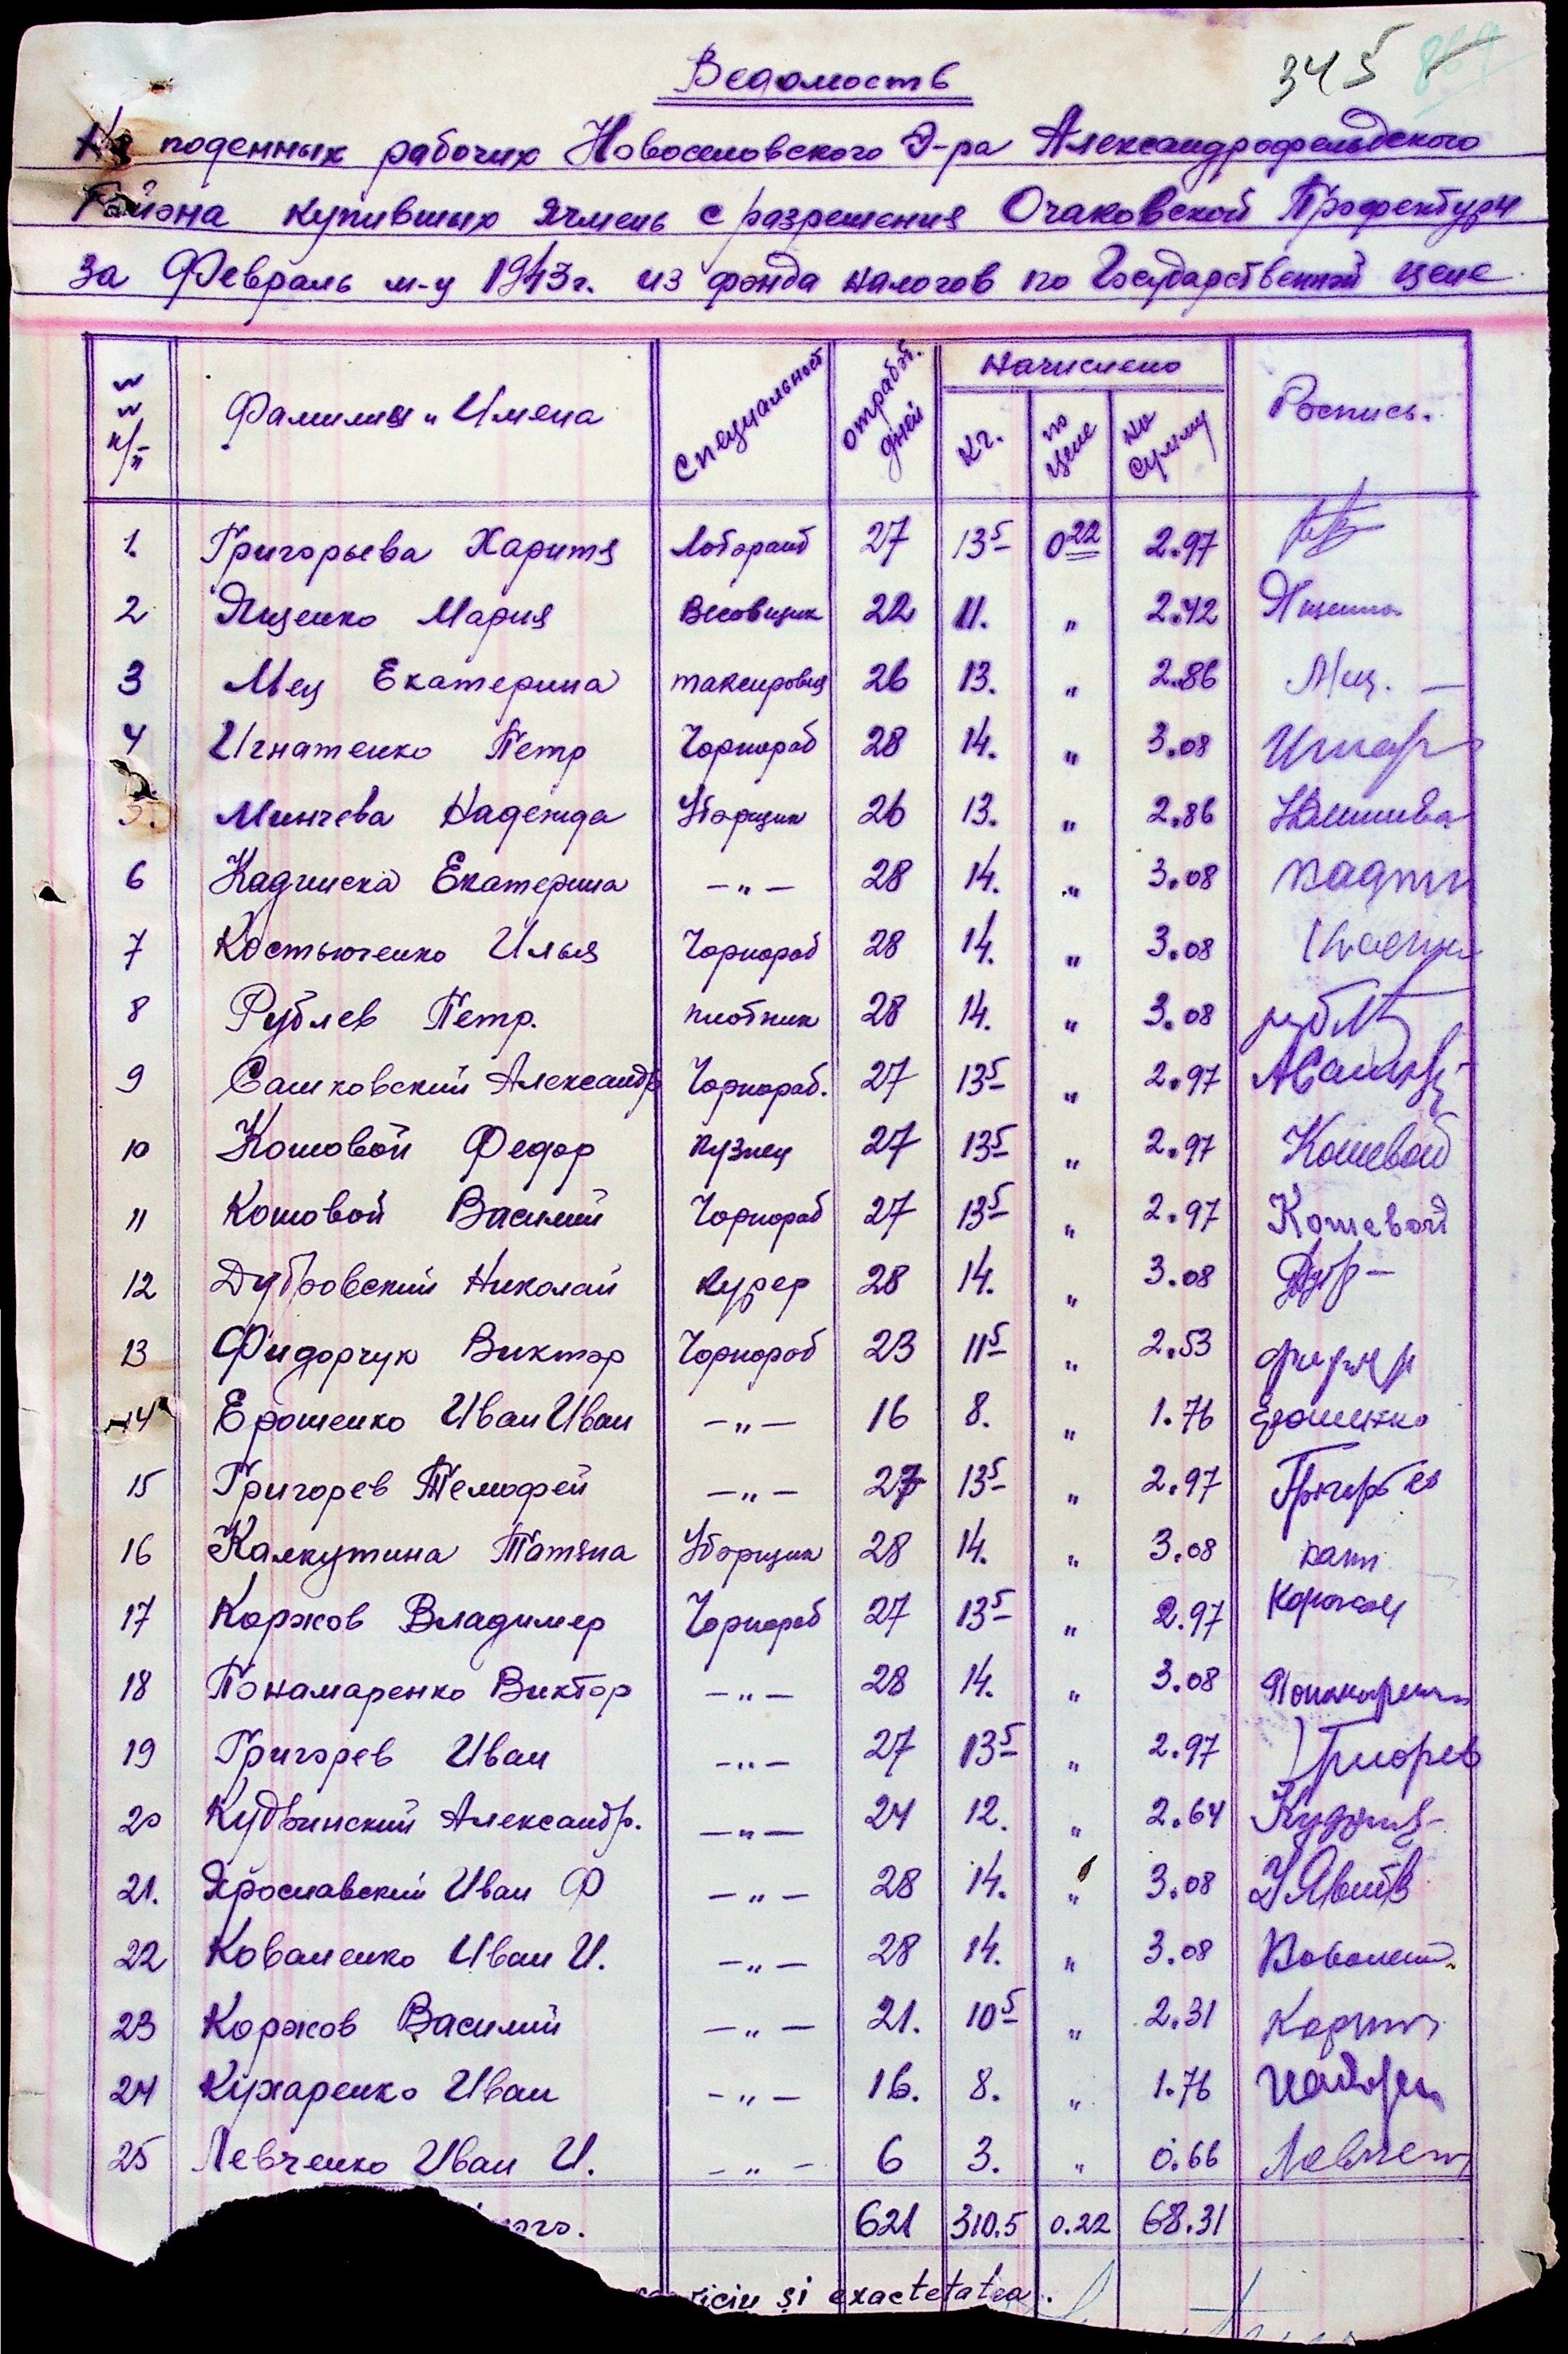 345
Ведомость
На поденных рабочих Новоселовского Э-ра Александрофельдского
Района купивших Ячмень с разрешения Очаковской Префектуры
За Февраль м-ц 1943г. из фонда налогов по Государственной цене
№ № п/п Фамилии и Имена Специальност отработ. дней Начислено Кг. по цене на сумму Роспись.
1. Григорьева Харитя Лоборант 27 13⁵ 0²² 2.97
2 Ященко Мария Весовщик 22 11. " 2.42 Ященко
3 Мец Екатерина таксировщ 26 13. " 2.86 Мец. —
4 Игнатенко Петр Чорнораб 28 14. " 3.08
5. Минчева Надежда Уборщик 26 13. " 2.86
6 Кадчиска Екатерина —"— 28 14. " 3.08
7 Костюченко Илья Чорнораб 28 14. " 3.08
8 Рублев Петр. плотник 28 14. " 3.08
9 Сашковский Александр Чорнораб. 27 13⁵ " 2.97
10 Кошовой Федор кузнец 27 13⁵ " 2.97 Кошевой
11 Кошовой Василий Чорнораб 27 13⁵ " 2.97 Кошевой
12 Дубровский Николай курер 28 14. " 3.08
13 Фидорчук Виктор Чорнораб 23 11⁵ " 2.53
14 Ерошенко Иван Иван —"— 16 8. " 1.76 Ерошенко
15 Григорев Темофей —"— 27 13⁵ " 2.97
16 Калкутина Татяна Уборщик 28 14. " 3.08
17 Коржов Владимер Чорнораб 27 13⁵ " 2.97
18 Понамаренко Виктор —"— 28 14. " 3.08
19 Григорев Иван —"— 27 13⁵ " 2.97
20 Кудвинский Александр. —"— 24 12. " 2.64
21. Ярославский Иван Ф —"— 28 14. " 3.08
22 Коваленко Иван И. —"— 28 14. " 3.08
23 Коржов Василий —"— 21. 10⁵ " 2.31
24 Кухаренко Иван —"— 16. 8. " 1.76
25 Левченко Иван И. —"— 6 3. " 0.66
621 310.5 0.22 68.31
și exactetatea.